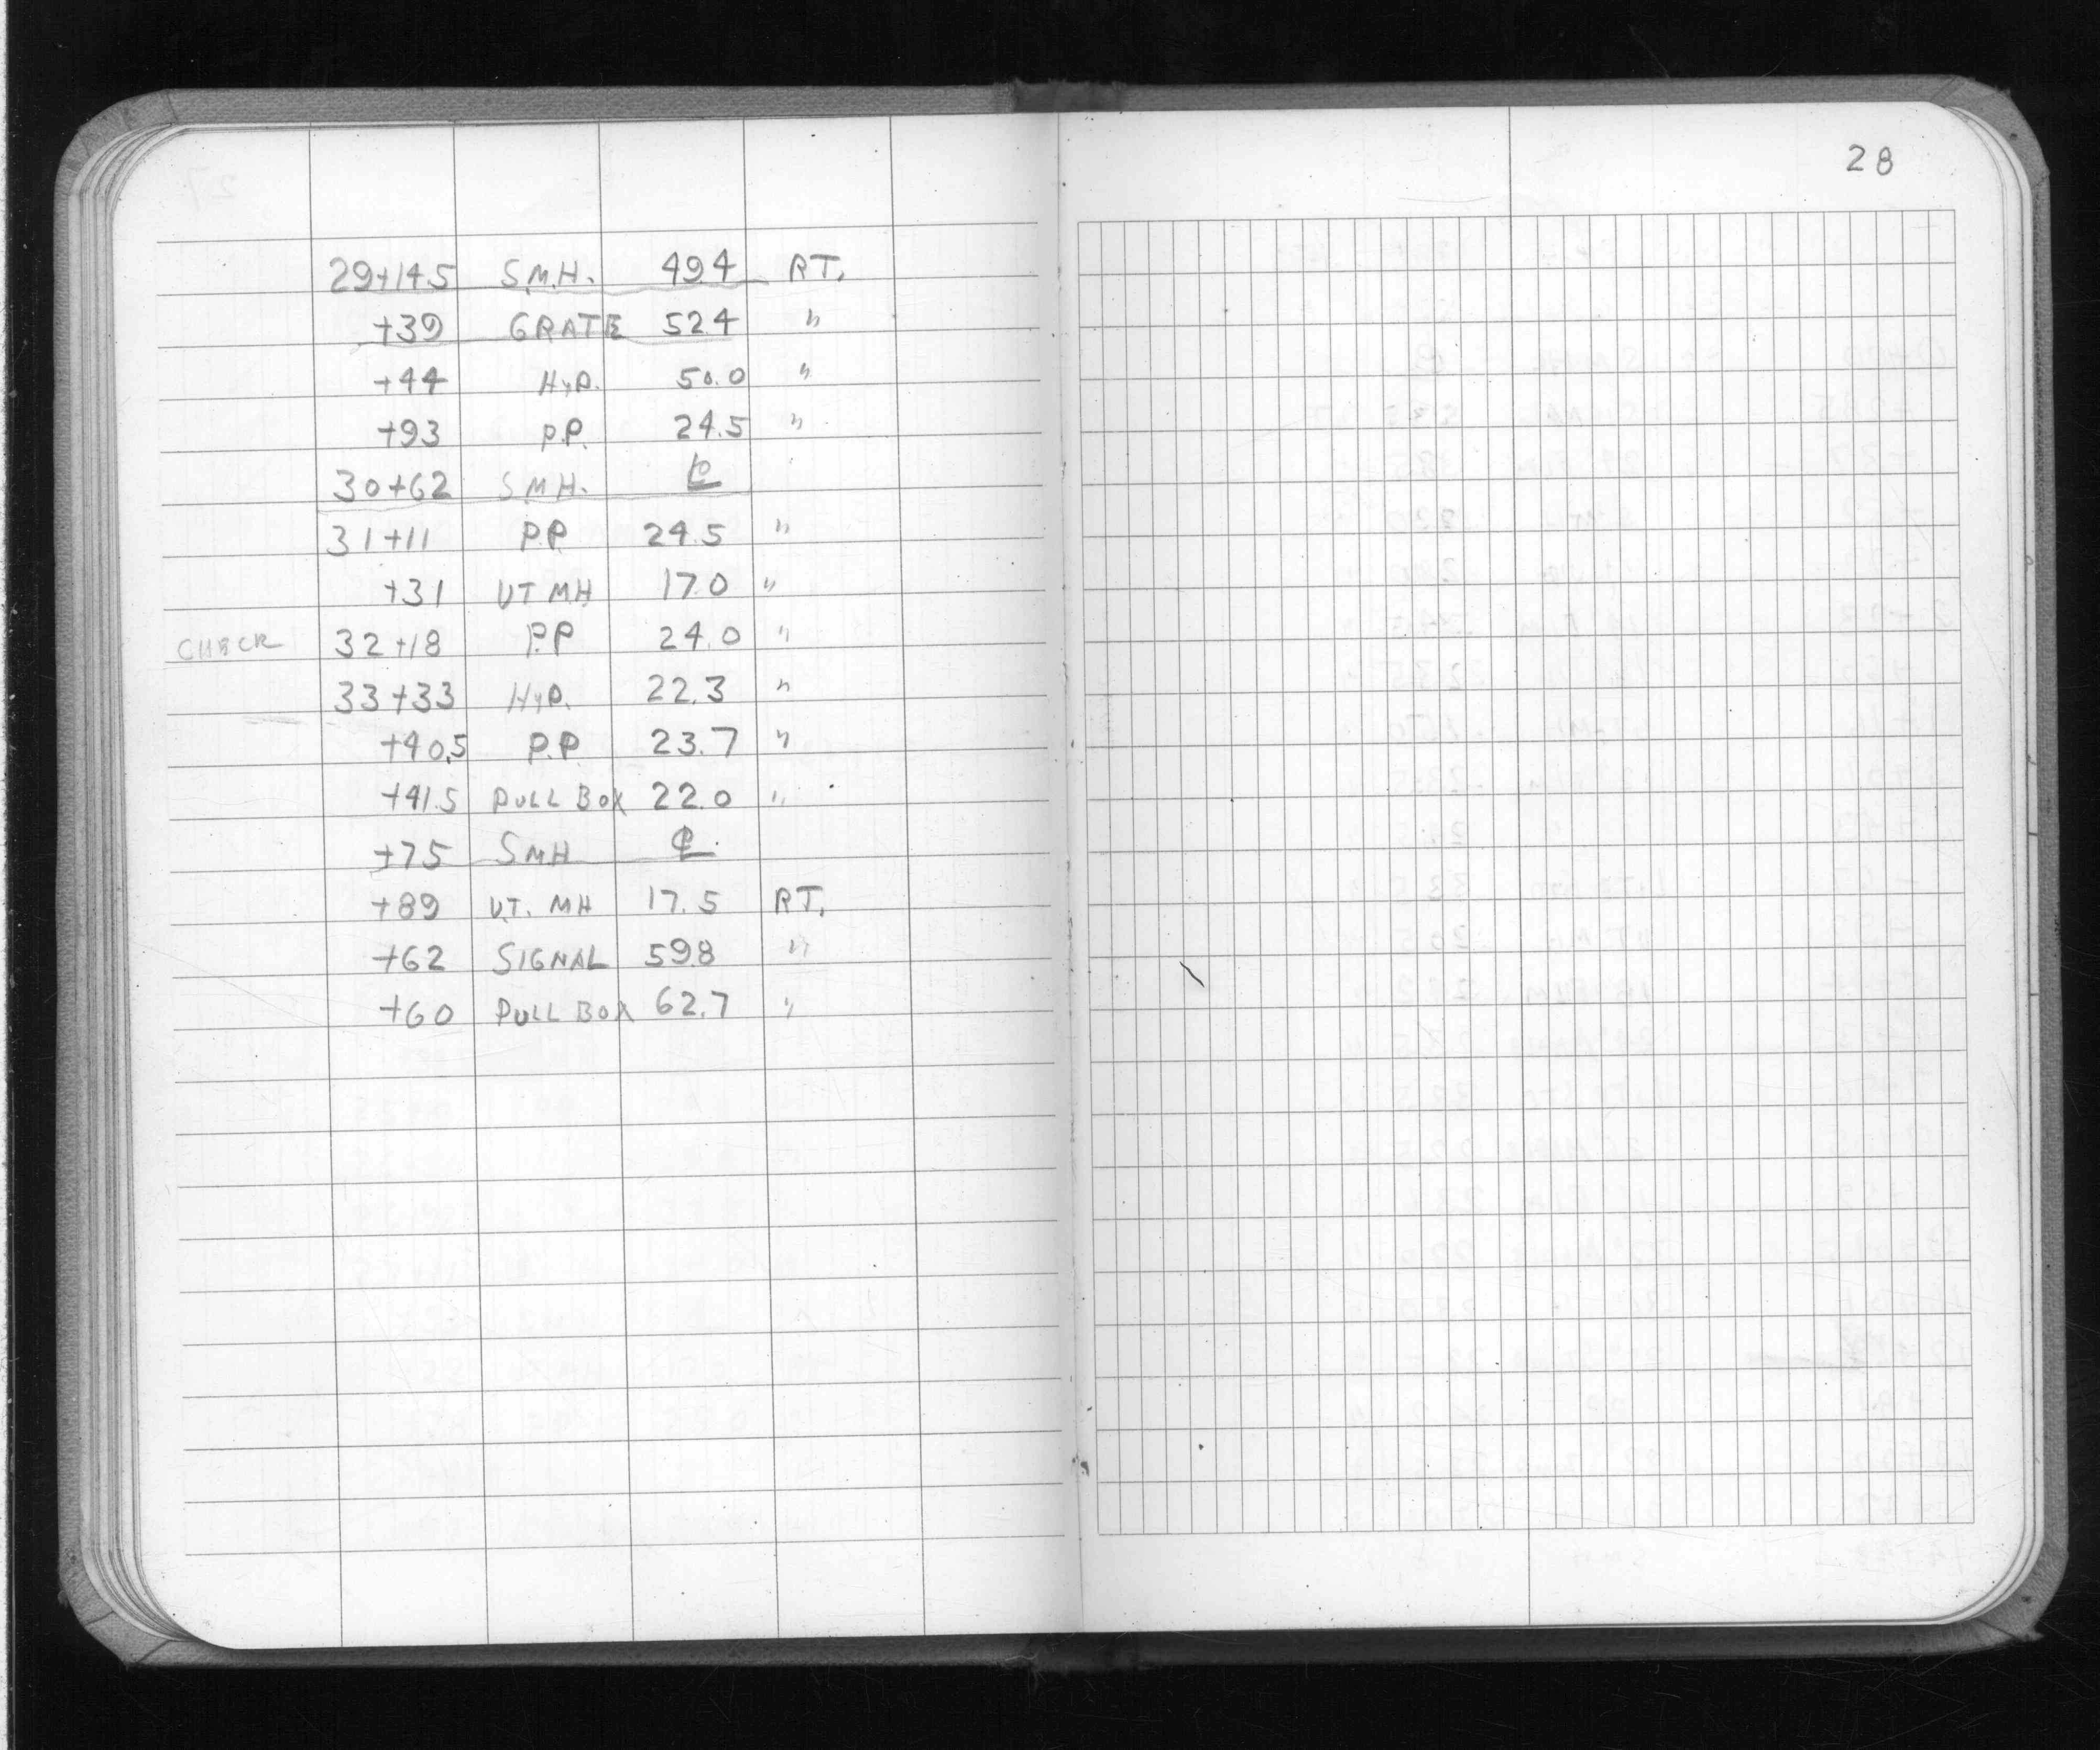 28
29+14.5 S.M.H. 49.4 RT.
+39 GRATE 52.4 "
+44 HYD. 50.0 "
+93 P.P. 24.5 "
30+62 S.M.H. ℄
31+11 P.P. 24.5 "
+31 UT MH 17.0 "
CHECK 32+18 P.P 24.0 "
33+33 HYD. 22.3 "
+40.5 P.P. 23.7 "
+41.5 PULL BOX 22.0 "
+75 SMH ℄
+89 UT. MH 17.5 RT.
+62 SIGNAL 59.8 "
+60 PULL BOX 62.7 "